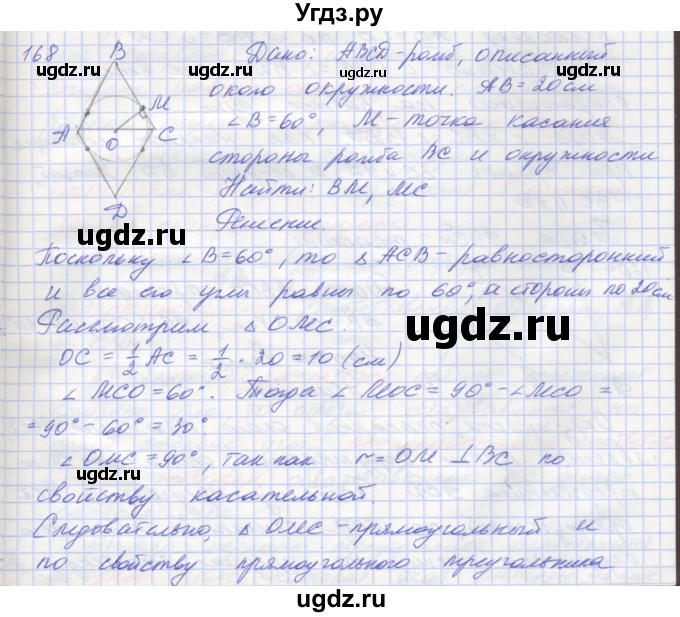 Угдз.ру
168
B
M
A
O
C
D
Дано: ABCD - ромб, описанный
около окружности. AB = 20 см
∠B = 60°, M - точка касания
стороны ромба BC и окружности
Найти: BM, MC
Решение.
Поскольку ∠B = 60°, то △ ACB - равносторонний
и все его углы равны по 60°, а стороны по 20 см
Рассмотрим △ OMC.
OC = 1/2 AC = 1/2 · 20 = 10 (см)
∠ MCO = 60°. Тогда ∠ MOC = 90° - ∠MCO =
= 90° - 60° = 30°.
∠ OMC = 90°, так как r = OM ⊥ BC по
свойству касательной
Следовательно, △ OMC - прямоугольный и
по свойству прямоугольного треугольника
ugdz.ru
ugdz.ru
ugdz.ru
ugdz.ru
ugdz.ru
ugdz.ru
ugdz.ru
ugdz.ru
ugdz.ru
ugdz.ru